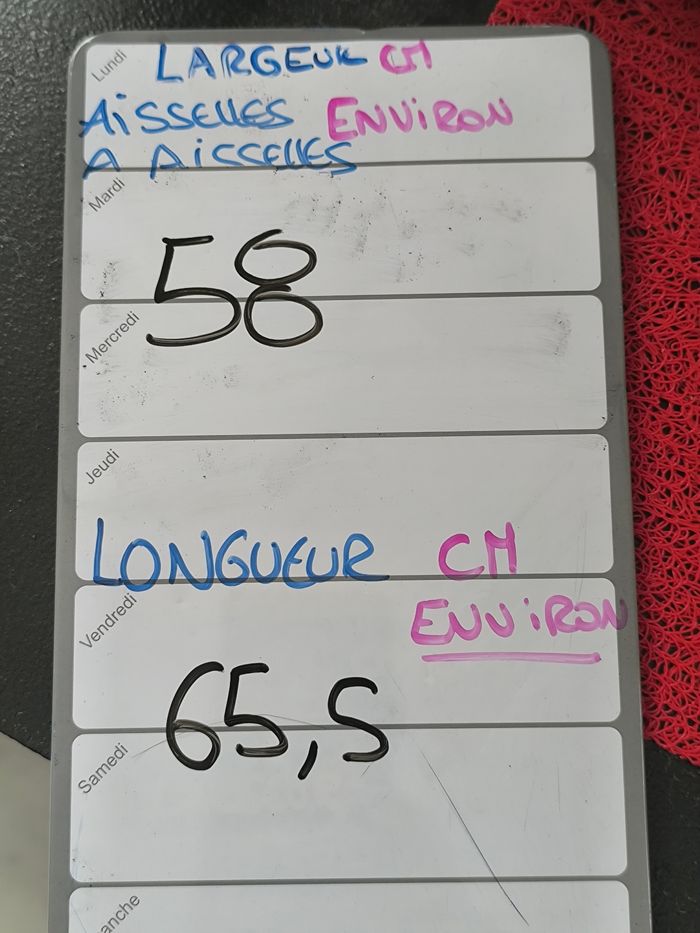 Lundi
LARGEUR CM
AISSELLES ENVIRON
A AISSELLES
Mardi
58
Mercredi
Jeudi
LONGUEUR CM
Vendredi
ENVIRON
65,5
Samedi
anche